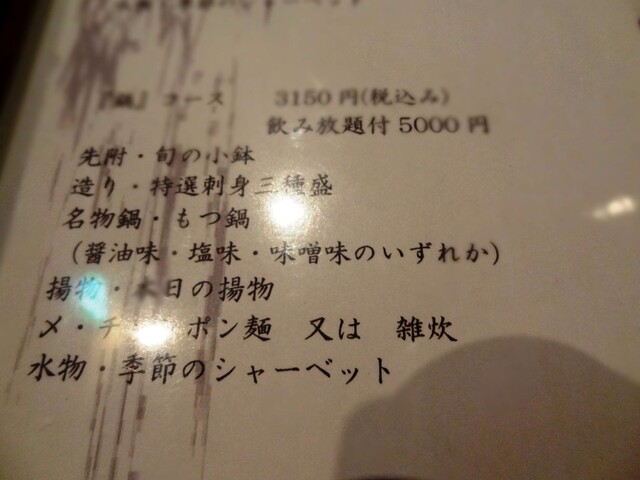 『鍋』コース 3150円(税込み)
飲み放題付5000円
先附・旬の小鉢
造り・特選刺身三種盛
名物鍋・もつ鍋
(醤油味・塩味・味噌味のいずれか)
揚物・本日の揚物
〆・チャンポン麺 又は 雑炊
水物・季節のシャーベット